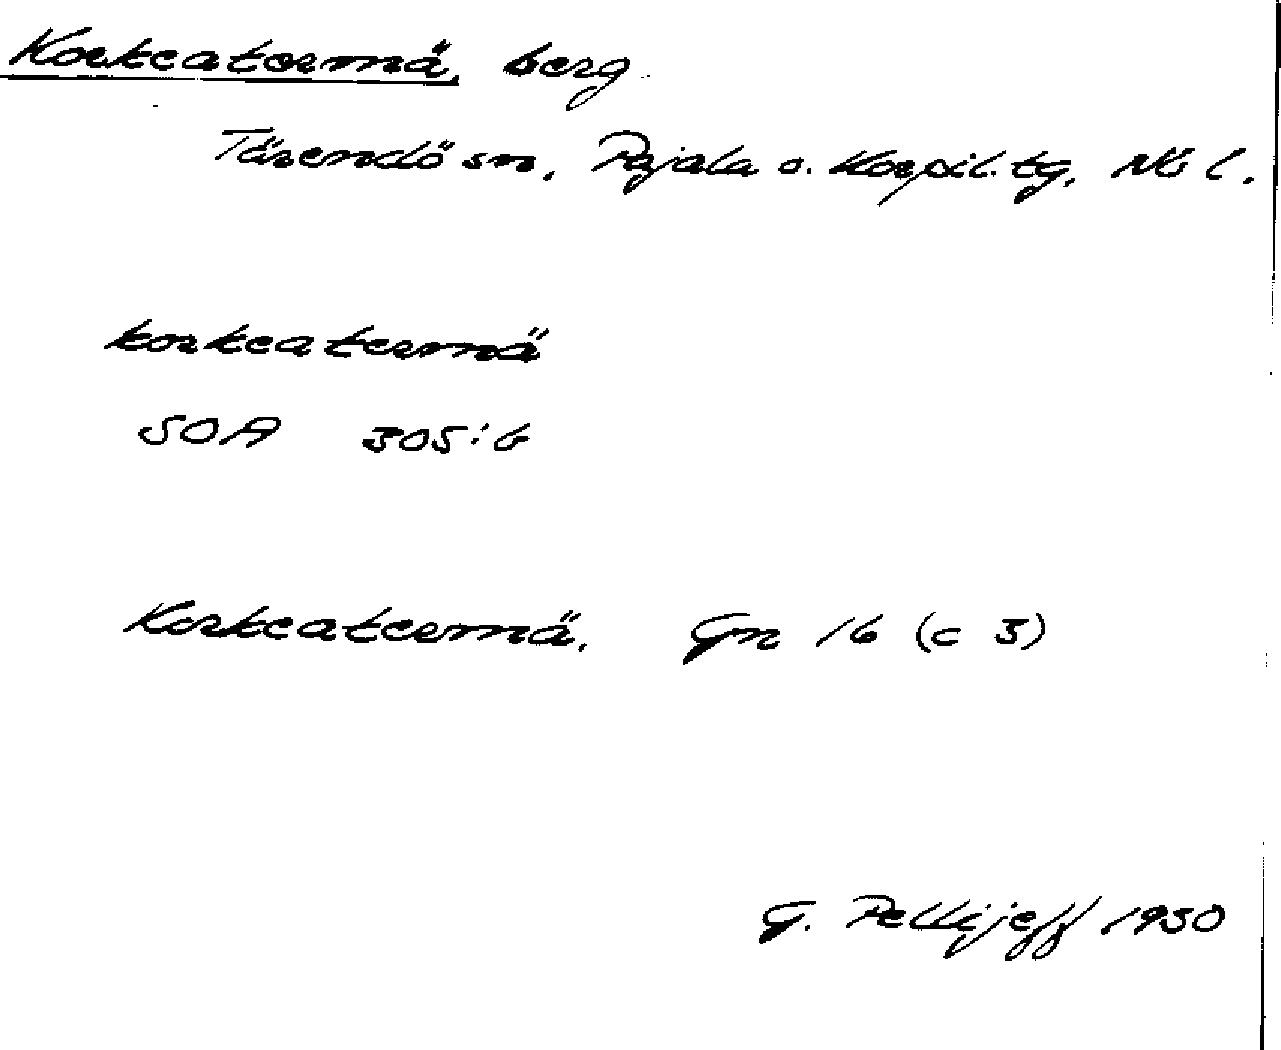 Korkeatermä, berg
Tärendö sn, Pajala o. Korpil. tg, Nb l.
korkeatermä
SOA 305:6
Korkeatermä, Gn 16 (c 3)
G. Pellijeff 1950